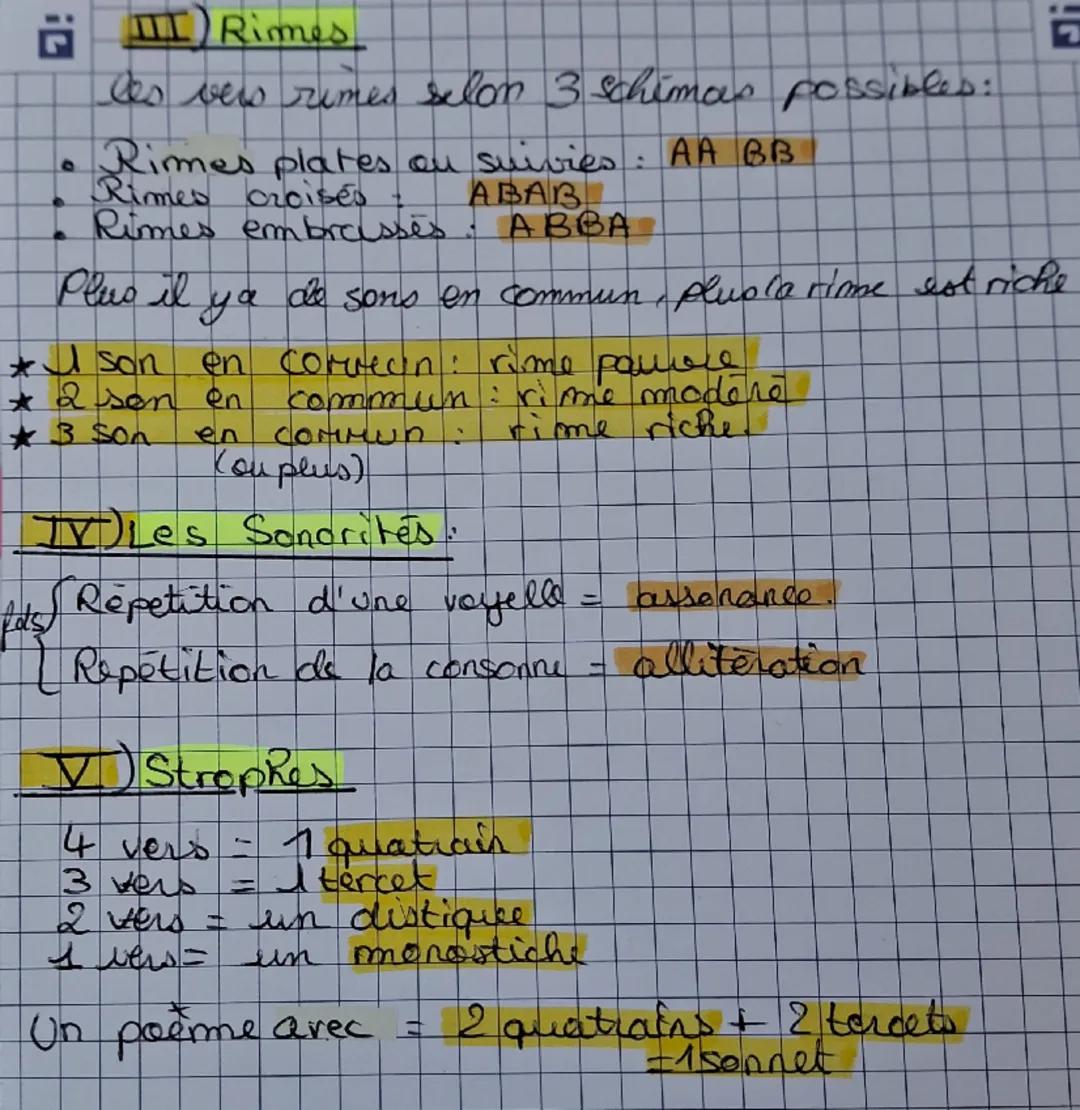 III) Rimes
Les vers rimes selon 3 schémas possibles:
• Rimes plates ou suivies : AA BB
• Rimes croisés : ABAB
• Rimes embrassés : ABBA
Plus il y a de sons en commun, plus la rime est riche
★ 1 son en commun : rime pauvre
★ 2 son en commun : rime modéré
★ 3 son en commun : rime riche.
(ou plus)
IV) Les Sonorités :
Répetition d'une voyelle = assonance.
Repétition de la consonne = allitération
V) Strophes
4 vers = 1 quatrain
3 vers = 1 tercet
2 vers = un distique
1 vers = un monostiche
Un poème avec = 2 quatrains + 2 tercets
=1 sonnet